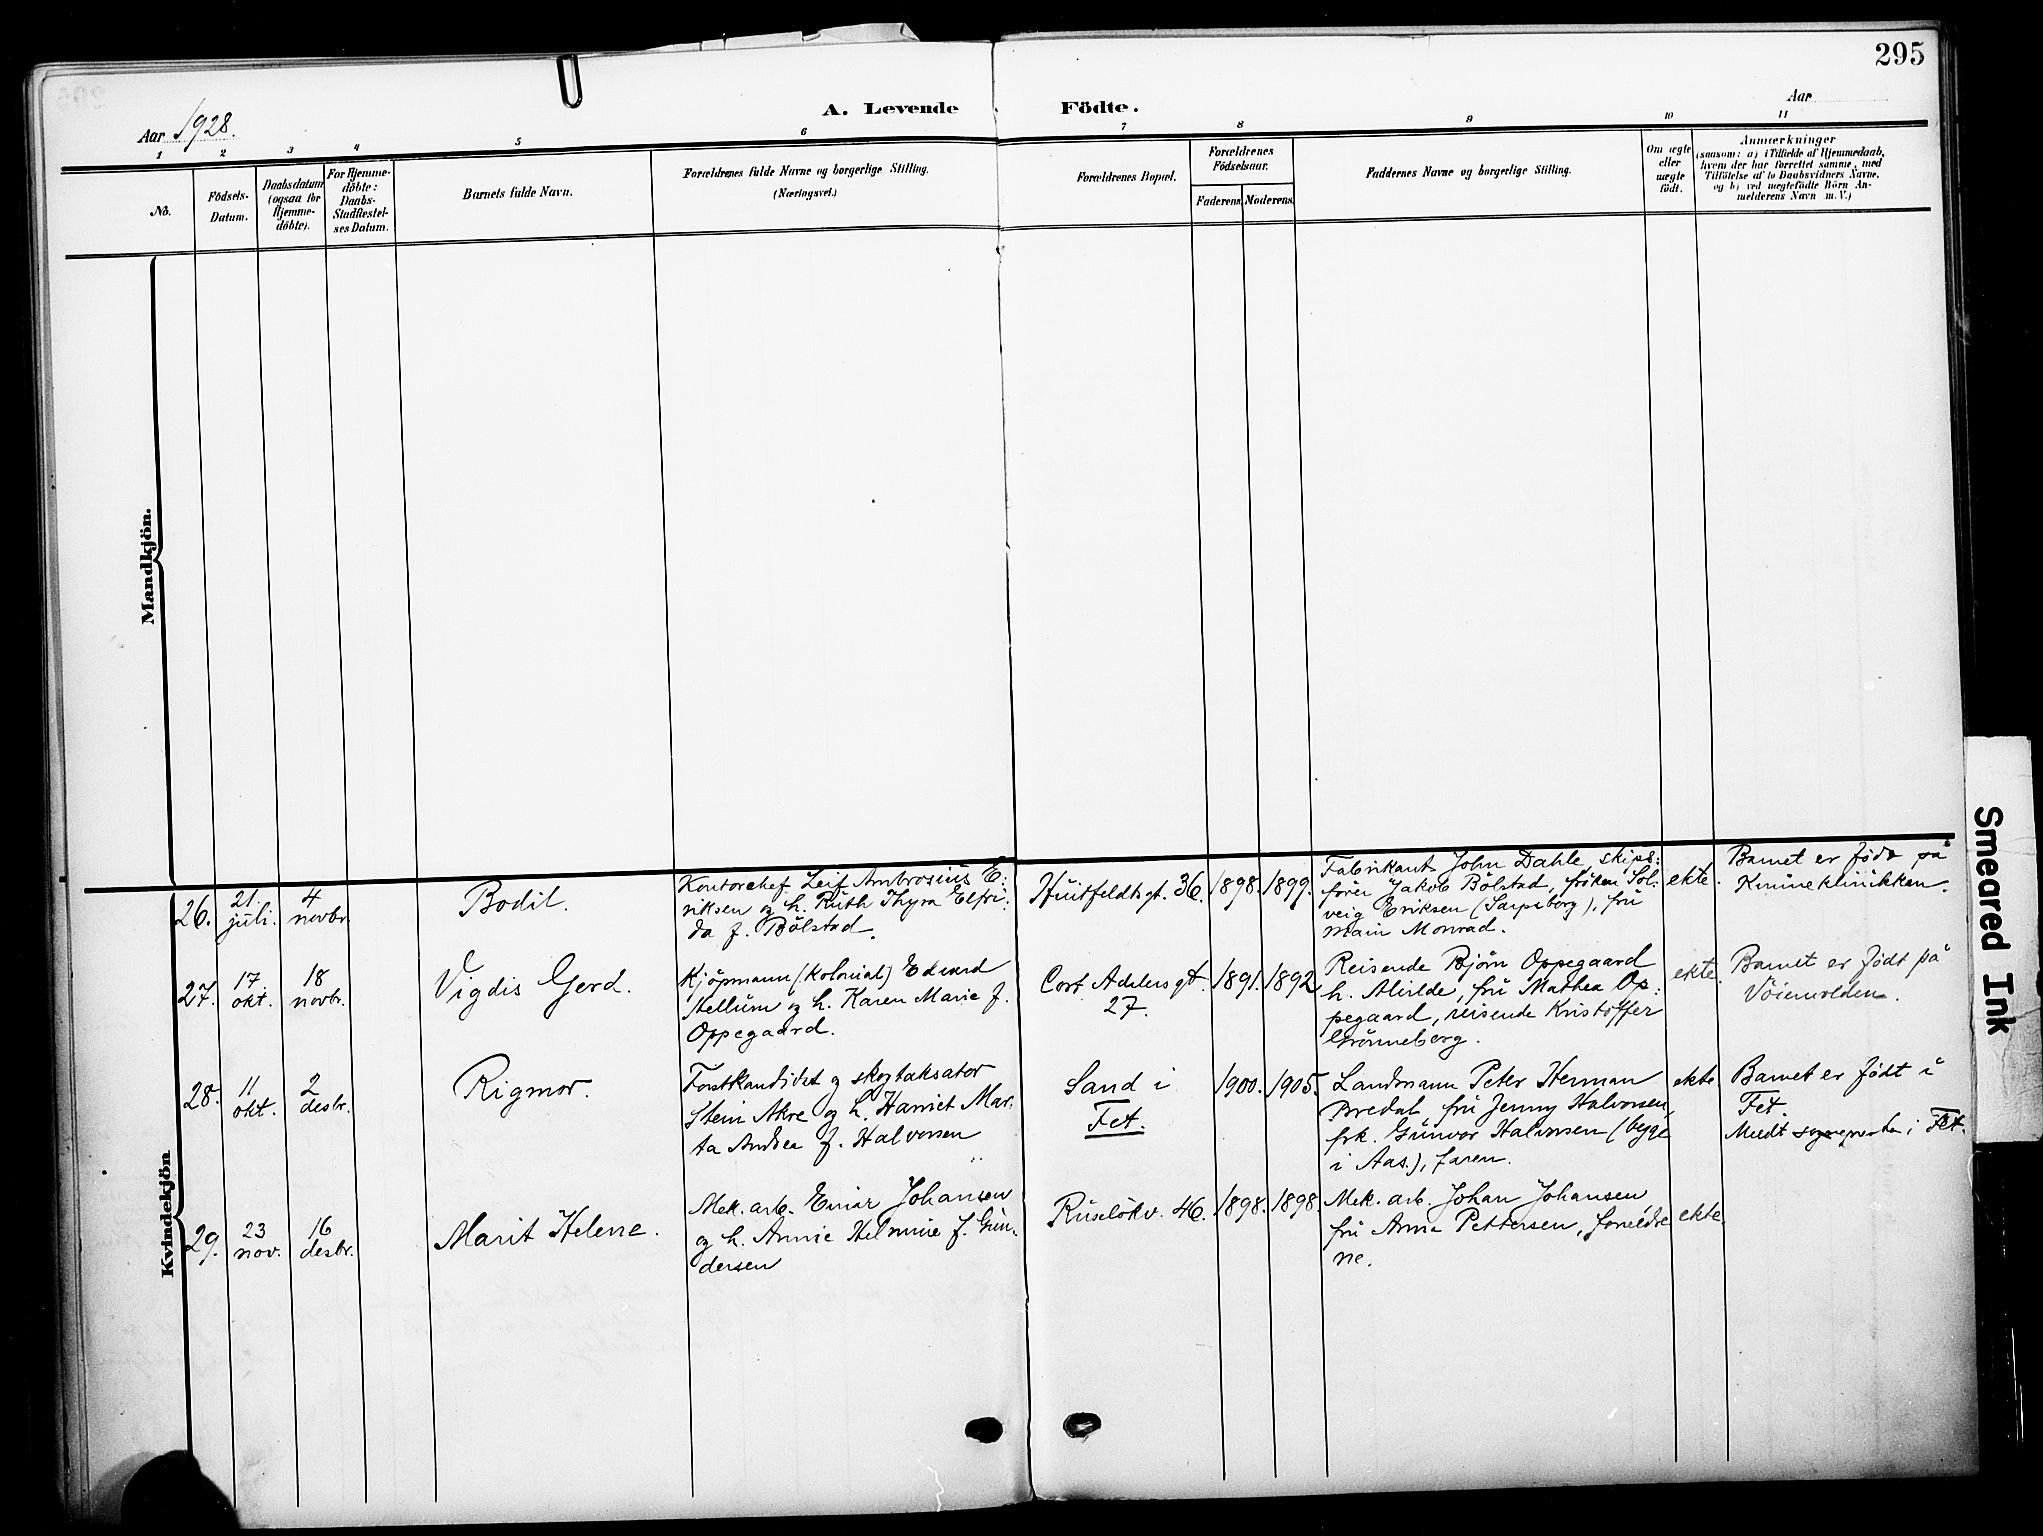 295
Aar 1928.
A. Levende Födte.
Aar
1 2 3 4 5 6 7 8 9 10 11
No.
Födsels-
Datum.
Daabsdatum
(ogsaa for
Hjemme-
döbte).
For Hjemme-
döbte:
Daabs-
Stadfæstel-
ses Datum.
Barnets fulde Navn.
Forældrenes fulde Navne og borgerlige Stilling.
(Næringsvei.)
Forældrenes Bopæl.
Forældrenes
Födselsaar.
Faderens. Moderens.
Faddernes Navne og borgerlige Stilling.
Om ægte
eller
uægte
födt.
Anmærkninger
(saasom: a) i Tilfælde af Hjemmedaab,
hvem der har forrettet samme, med
Tilföielse af to Daabsvidners Navne,
og b) ved uægtefödte Börn An-
melderens Navn m. V.)
Mandkjön.
Kvindekjön
26.
21.
juli.
4
novbr.
Bodil.
Kontorchef Leif Ambrosius E:
riksen og h. Ruth Thyra Elfri:
da f. Bölstad.
Huitfeldtsgt. 36.
1898.
1899.
Fabrikant John Dahle, skips:
förer Jakob Bölstad, fröken Sol:
veig Eriksen (Sarpsborg), fru
Main Monrad.
ekte.
Barnet er födt på
Kvineklinikken.
27.
17
okt.
18
novbr.
Vigdis Gerd.
Kjöpmann (kolonial) Edvard
Stellum og h. Karen Marie f.
Oppegaard.
Cort Adelers gt.
27.
1891.
1892
Reisende Bjørn Oppegaard
h. Alvilde, fru Mathea Op:
pegaard, reisende Kristoffer
Grönneberg.
ekte.
Barnet er födt på
Vöienvolden.
28.
11
okt.
2
desbr.
Rigmor.
Forstkandidat og skogtaksator
Stein Akre og h. Harriet Mar:
ta Andrea f. Halvorsen
Sand i
Fet.
1900.
1905.
Landmann Peter Herman
Bredal, fru Jenny Halvorsen,
frk. Gunvor Halvorsen (begge
i Aas.), faren.
ekte
Barnet er födt i
Fet.
Meldt sognepresten i Fet.
29.
23
nov.
16
desbr.
Marit Helene.
Mek. arb. Einar Johansen
og h. Annie Helmine f. Gun:
dersen
Ruselökv. 46.
1898.
1898.
Mek. arb. Johan Johansen
fru Anna Pettersen, foreldre
ne.
ekte.
Smeared Ink